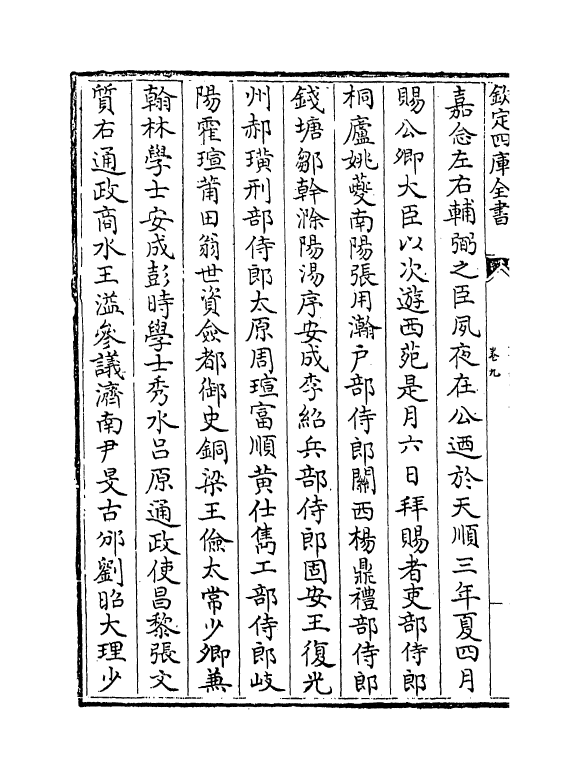 欽定四庫全書
卷九
嘉念左右輔弼之臣夙夜在公迺於天順三年夏四月
賜公卿大臣以次遊西苑是月六日拜賜者吏部侍郎
桐廬姚夔南陽張用瀚户部侍郎關西楊鼎禮部侍郎
錢塘鄒幹滁陽湯序安成李紹兵部侍郎固安王復光
州郝璜刑部侍郎太原周瑄富順黄仕儁工部侍郎岐
陽霍瑄莆田翁世資僉都御史銅梁王儉太常少卿兼
翰林學士安成彭時學士秀水吕原通政使昌黎張文
質右通政商水王溢參議濟南尹旻古邠劉昭大理少